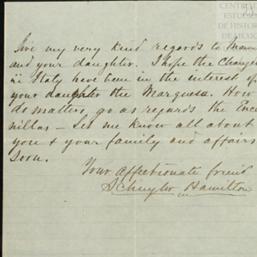 CENTRO
ESTU
DE HISTO
DE MÉXICO
Give my very kind regards to
and your daughter. I hope the Changes
in Italy have been in the interest of
your daughter the Marquesa. How
do matters go as regards the
– Let me know all about
you & your family and affairs
Soon.
Your Affectionate friend
Schuyler Hamilton